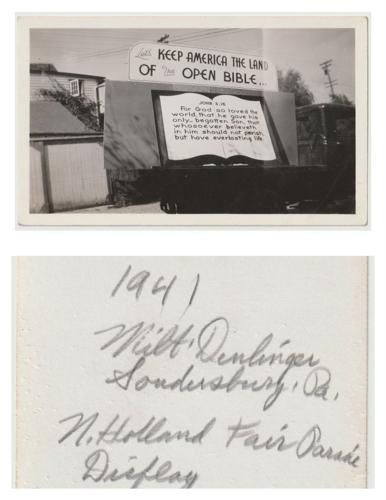 Let's KEEP AMERICA THE LAND
OF The OPEN BIBLE...
JOHN. 3, 16
For God so loved the
world, that he gave his
only... begotten Son, that
whosoever believeth
in him should not perish,
but have everlasting life.
1941
Milt. Denlinger
Soudersburg, Pa.
N. Holland Fair Parade
Display